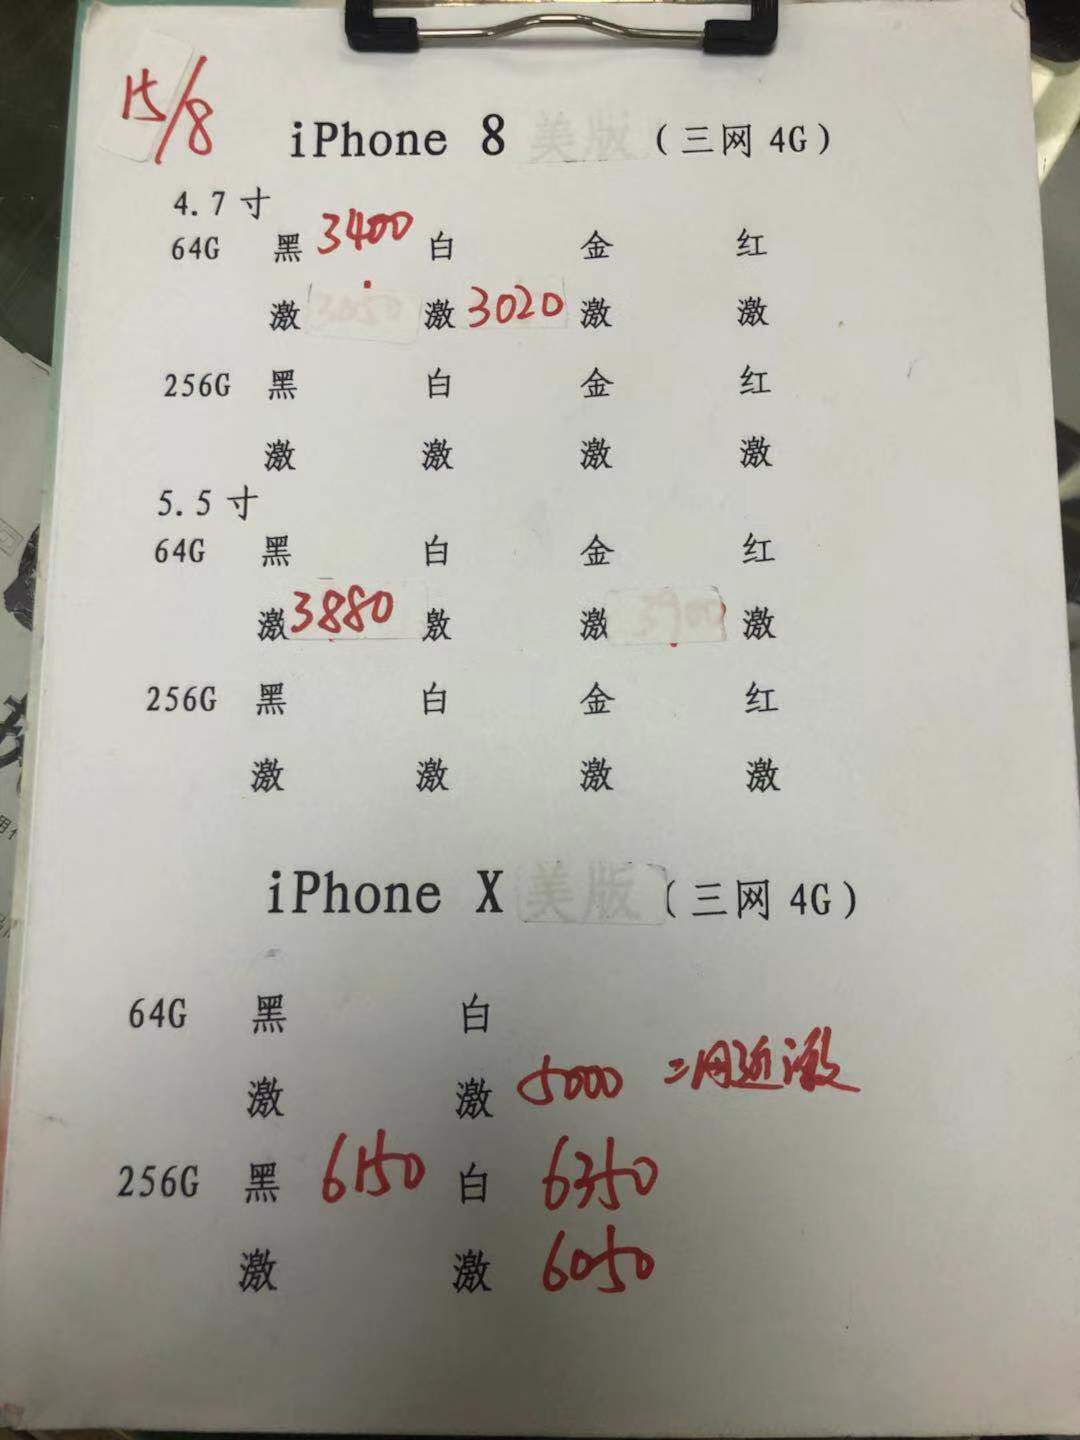 15/8
iPhone 8 美版 (三网 4G)
4.7 寸
64G 黑 3400 白 金 红
激 激 3020 激 激
256G 黑 白 金 红
激 激 激 激
5.5 寸
64G 黑 白 金 红
激 3880 激 激 激
256G 黑 白 金 红
激 激 激 激
iPhone X 美版 (三网 4G)
64G 黑 白
激 激 5000 二网近激
256G 黑 6150 白 6350
激 激 6050